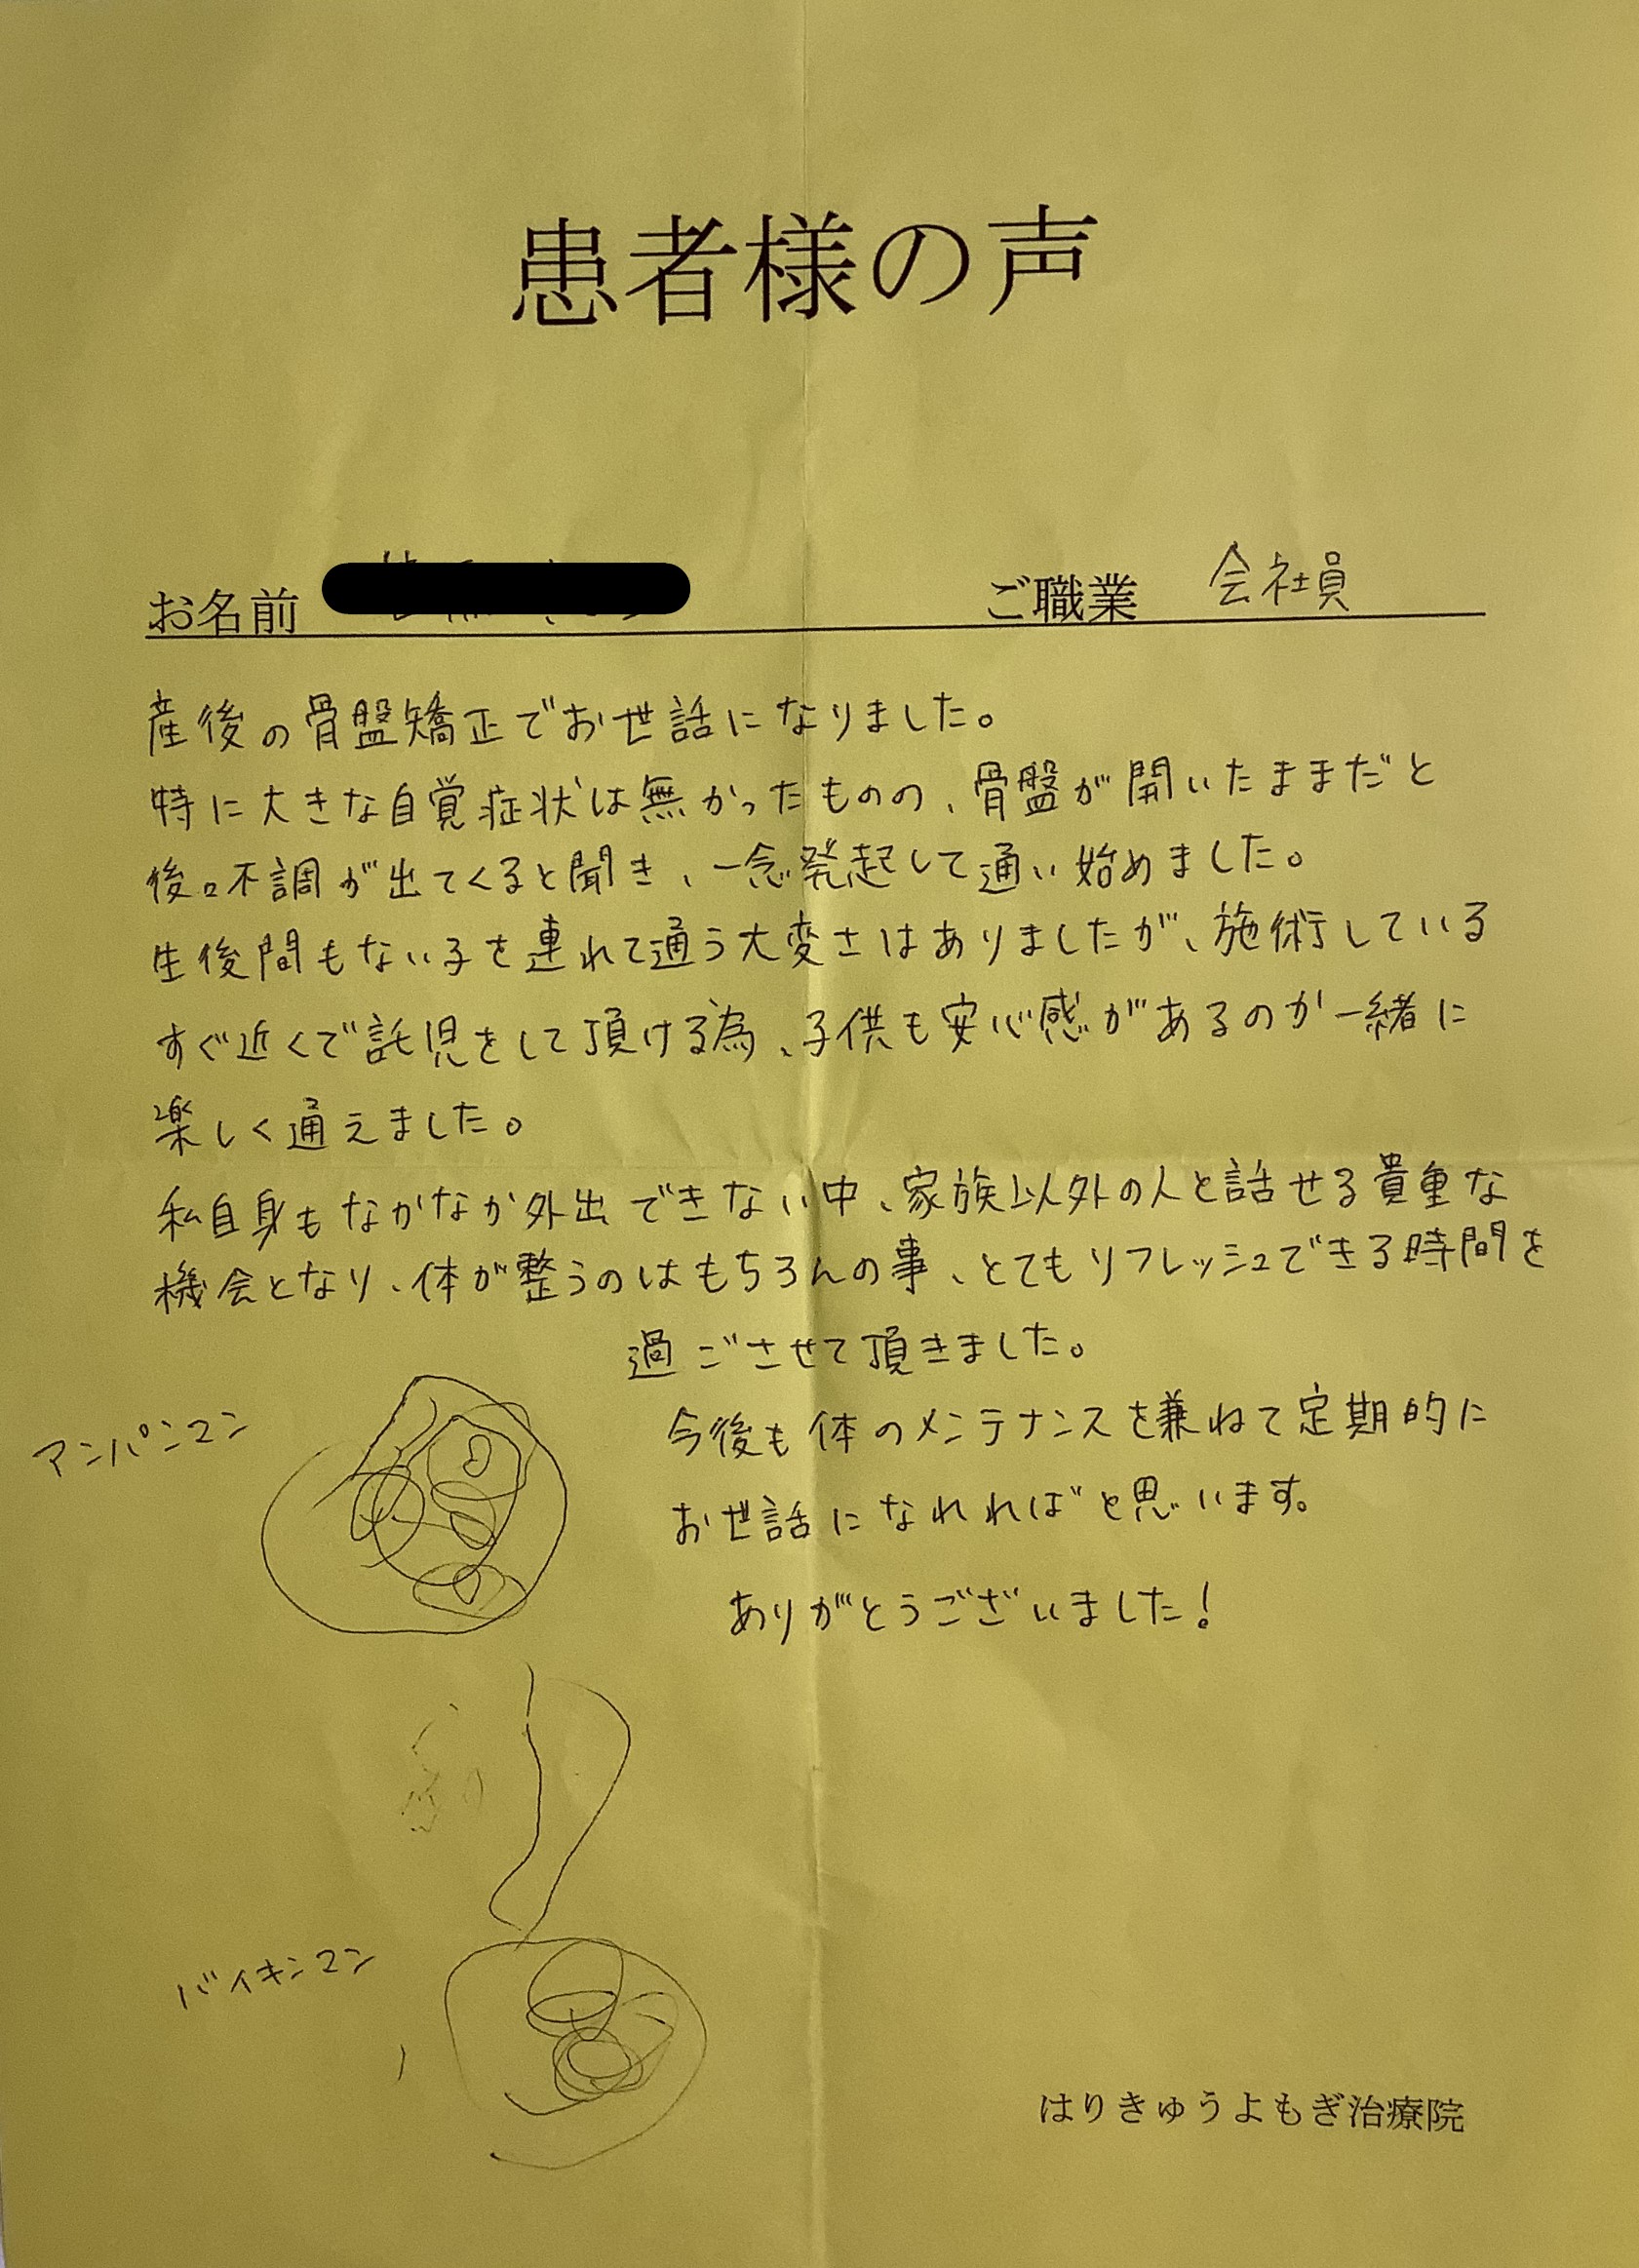 患者様の声
お名前 ご職業 会社員
産後の骨盤矯正でお世話になりました。
特に大きな自覚症状は無かったものの、骨盤が開いたままだと
後々不調が出てくると聞き、一念発起して通い始めました。
生後間もない子を連れて通う大変さはありましたが、施術している
すぐ近くで託児をして頂ける為、子供も安心感があるのか一緒に
楽しく通えました。
私自身もなかなか外出できない中、家族以外の人と話せる貴重な
機会となり、体が整うのはもちろんの事、とてもリフレッシュできる時間を
過ごさせて頂きました。
今後も体のメンテナンスを兼ねて定期的に
お世話になれればと思います。
ありがとうございました!
アンパンマン
バイキンマン
はりきゅうよもぎ治療院